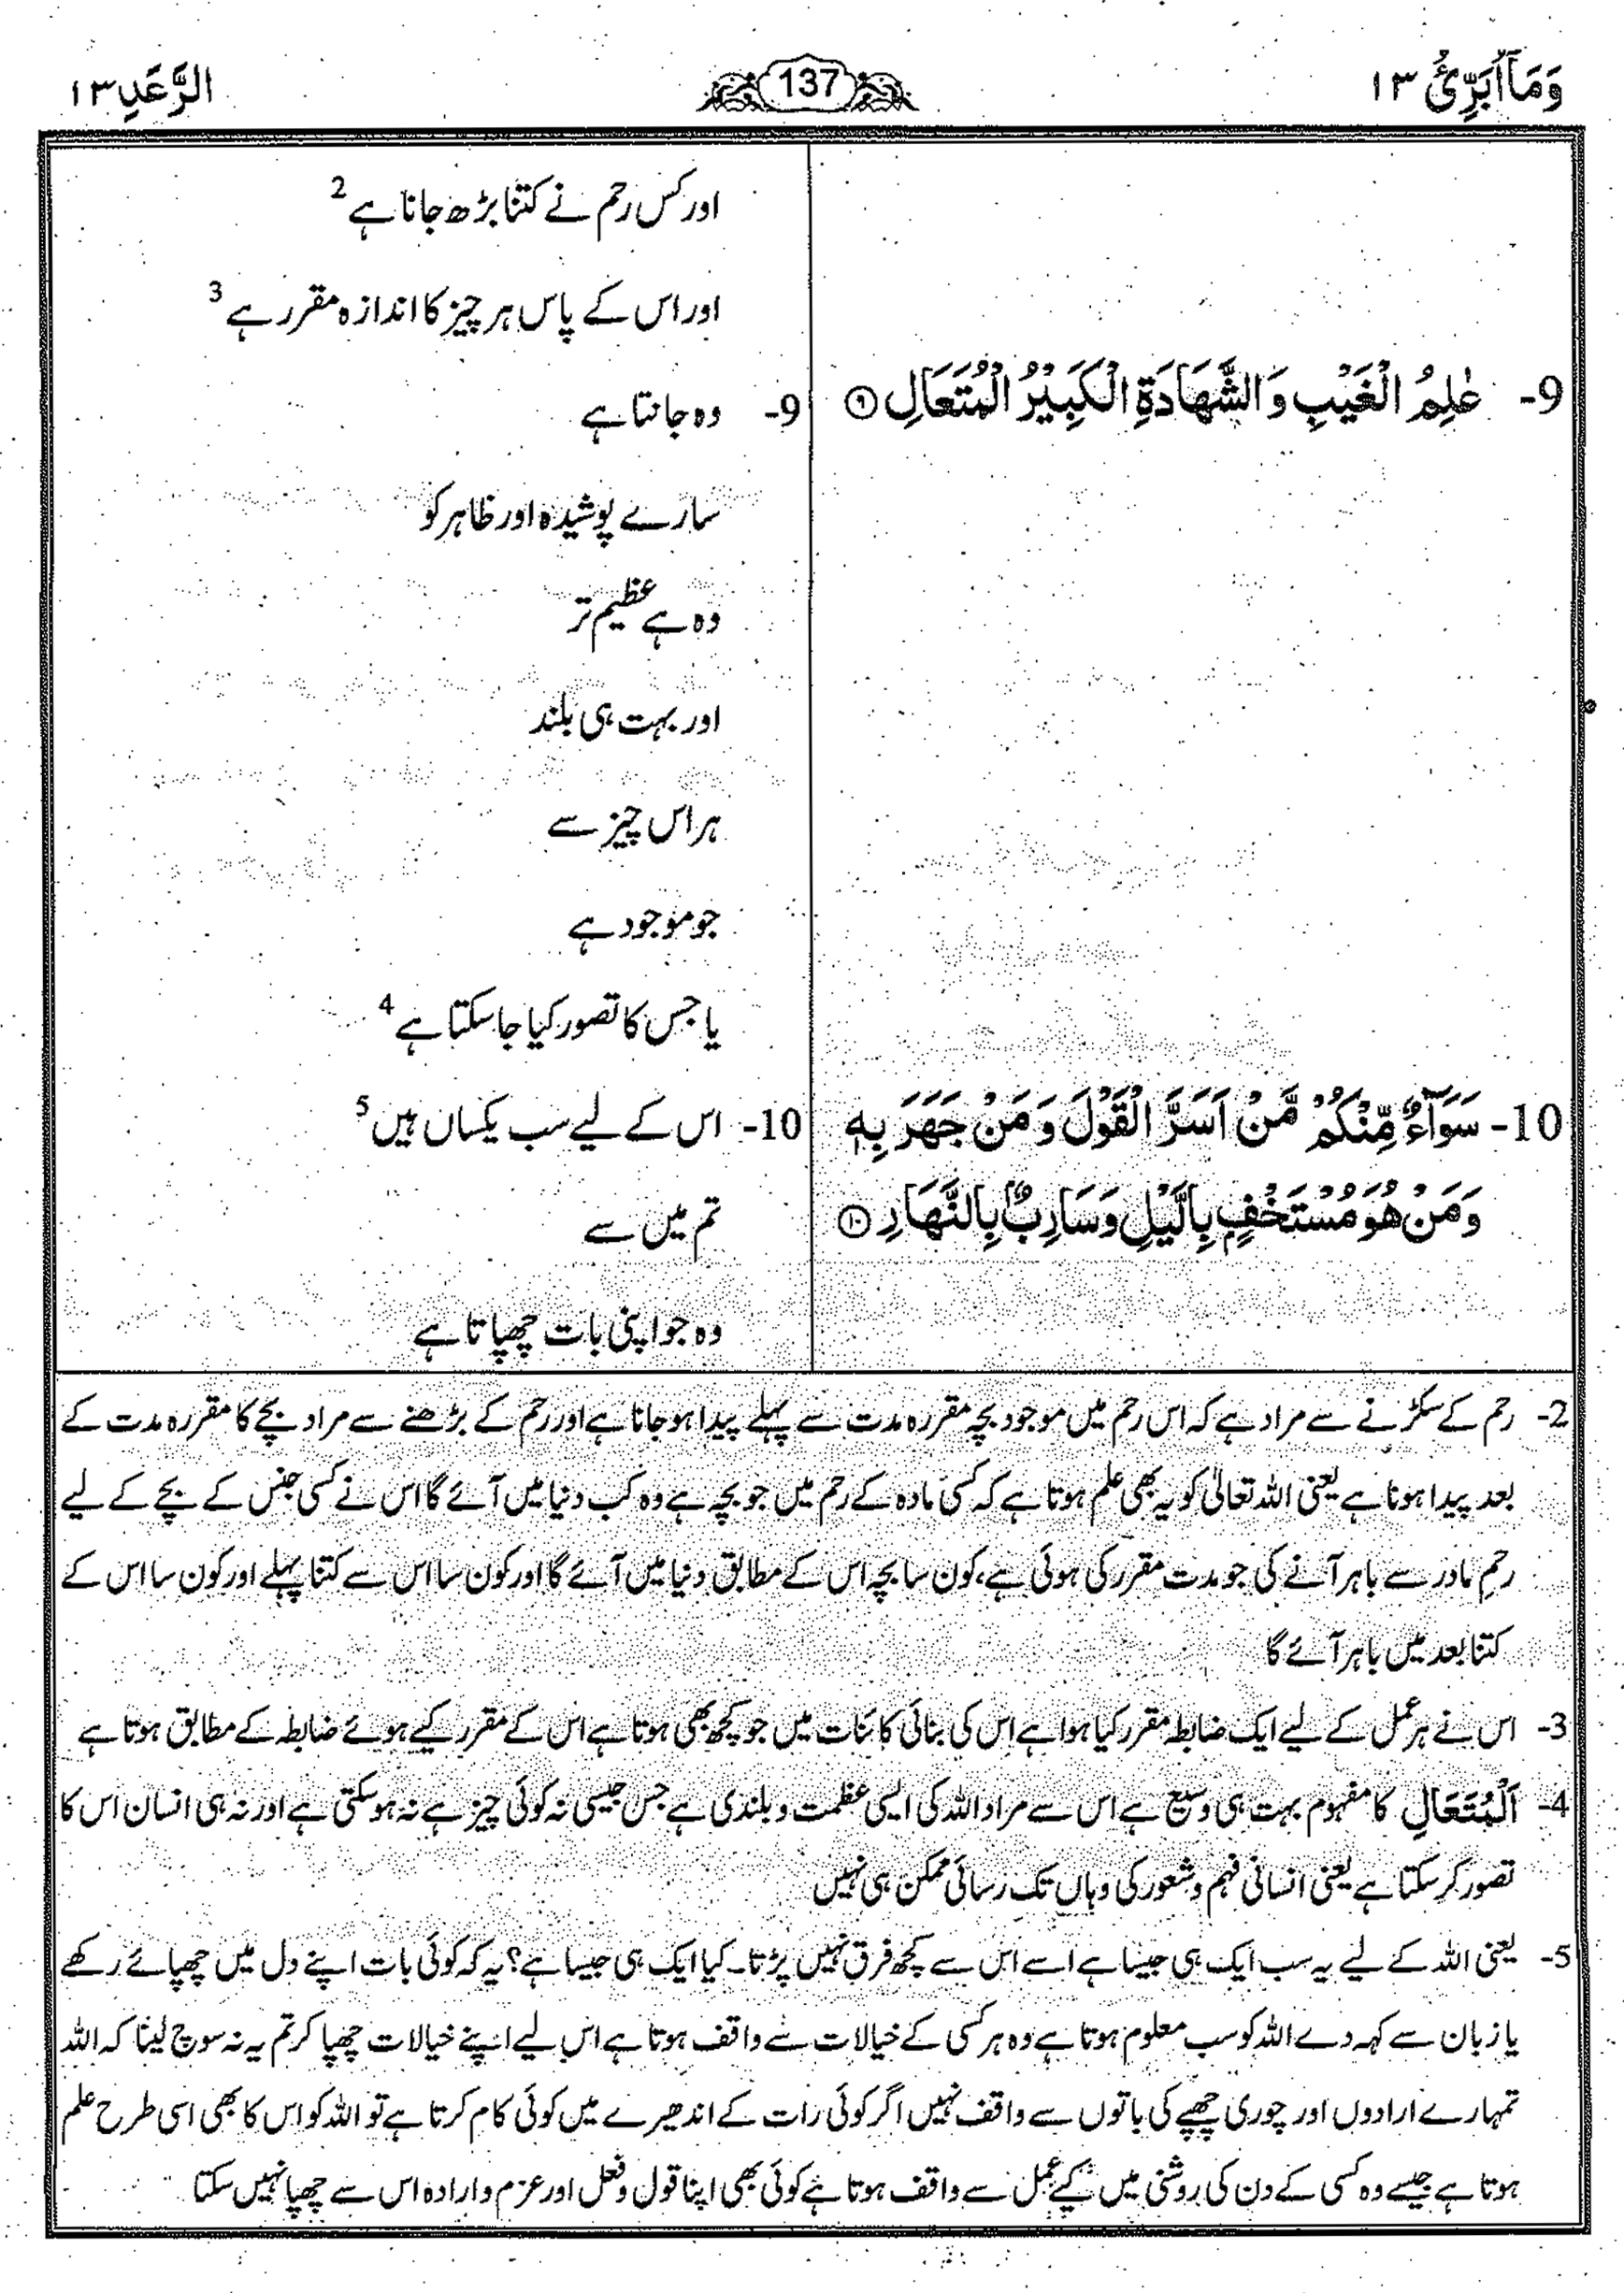 وَمَآاُبَرِّئُ ١٣
137
الرَّعَدِ ١٣
اور کس رحم نے کتنا بڑھ جانا ہے 2
اور اس کے پاس ہر چیز کا اندازہ مقرر ہے 3
9- عٰلِمُ الْغَيْبِ وَالشَّهَادَةِ الْكَبِيْرُ الْمُتَعَالِ ۹
9- وہ جانتا ہے
سارے پوشیدہ اور ظاہر کو
وہ ہے عظیم تر
اور بہت ہی بلند
ہر اس چیز سے
جو موجود ہے
یا جس کا تصور کیا جا سکتا ہے 4
10- سَوَآءٌ مِّنْكُمْ مَّنْ اَسَرَّ الْقَوْلَ وَمَنْ جَهَرَ بِهٖ
وَمَنْ هُوَ مُسْتَخْفٍۭ بِالَّيْلِ وَسَارِبٌۢ بِالنَّهَارِ ۱۰
10- اس کے لیے سب یکساں ہیں 5
تم میں سے
وہ جو اپنی بات چھپاتا ہے
2- رحم کے سکڑنے سے مراد ہے کہ اس رحم میں موجود بچہ مقررہ مدت سے پہلے پیدا ہو جانا ہے اور رحم کے بڑھنے سے مراد بچے کا مقررہ مدت کے
بعد پیدا ہونا ہے یعنی اللہ تعالیٰ کو یہ بھی علم ہوتا ہے کہ کسی مادہ کے رحم میں جو بچہ ہے وہ کب دنیا میں آئے گا اس نے کسی جنس کے بچے کے لیے
رحمِ مادر سے باہر آنے کی جو مدت مقرر کی ہوئی ہے، کون سا بچہ اس کے مطابق دنیا میں آئے گا اور کون سا اس سے کتنا پہلے اور کون سا اس کے
کتنا بعد میں باہر آئے گا
3- اس نے ہر عمل کے لیے ایک ضابطہ مقرر کیا ہوا ہے اس کی بنائی کائنات میں جو کچھ بھی ہوتا ہے اس کے مقرر کیے ہوئے ضابطہ کے مطابق ہوتا ہے
4- اَلْمُتَعَالِ کا مفہوم بہت ہی وسیع ہے اس سے مراد اللہ کی ایسی عظمت و بلندی ہے جس جیسی نہ کوئی چیز ہے نہ ہو سکتی ہے اور نہ ہی انسان اس کا
تصور کر سکتا ہے یعنی انسانی فہم و شعور کی وہاں تک رسائی ممکن ہی نہیں
5- یعنی اللہ کے لیے یہ سب ایک ہی جیسا ہے اسے اس سے کچھ فرق نہیں پڑتا۔ کیا ایک ہی جیسا ہے؟ یہ کہ کوئی بات اپنے دل میں چھپائے رکھے
یا زبان سے کہہ دے اللہ کو سب معلوم ہوتا ہے وہ ہر کسی کے خیالات سے واقف ہوتا ہے اس لیے اپنے خیالات چھپا کر تم یہ نہ سوچ لینا کہ اللہ
تمہارے ارادوں اور چوری چھپے کی باتوں سے واقف نہیں اگر کوئی رات کے اندھیرے میں کوئی کام کرتا ہے تو اللہ کو اس کا بھی اسی طرح علم
ہوتا ہے جیسے وہ کسی کے دن کی روشنی میں کیے عمل سے واقف ہوتا ہے کوئی بھی اپنا قول و فعل اور عزم و ارادہ اس سے چھپا نہیں سکتا